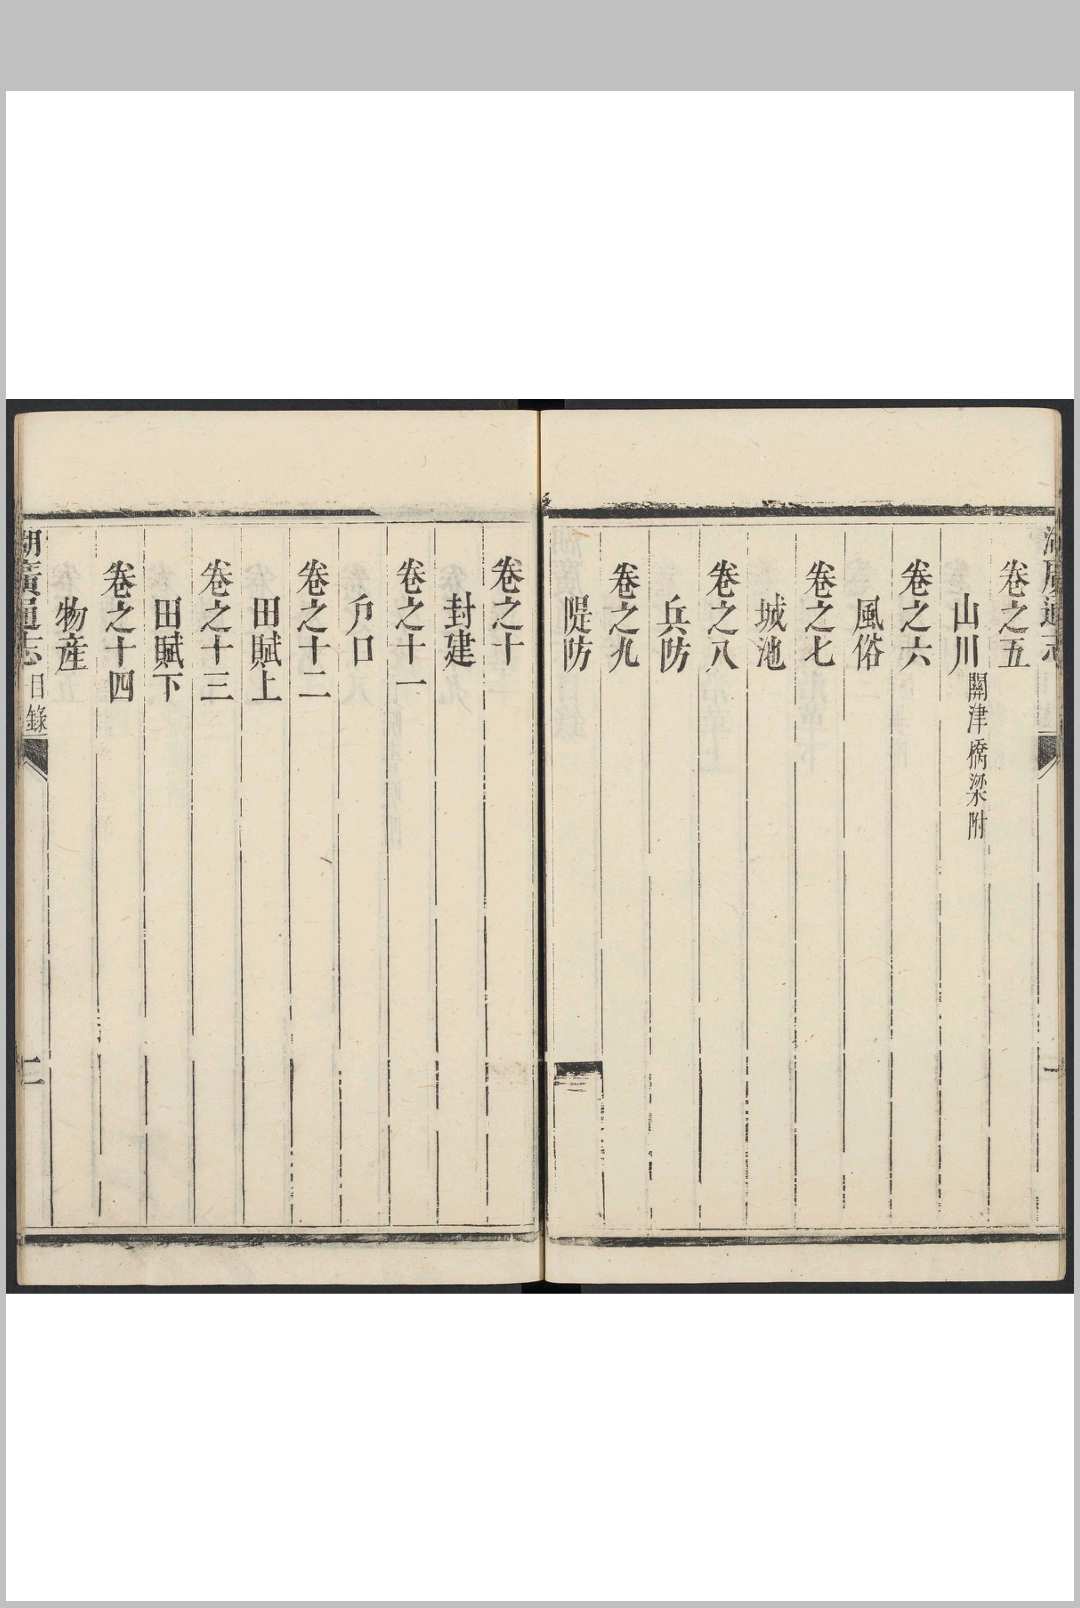 卷之五
山川關津橋梁附
卷之六
風俗
卷之七
城池
卷之八
兵防
卷之九
隄防
卷之十
封建
卷之十一
戶口
卷之十二
田賦上
卷之十三
田賦下
卷之十四
物産
湖廣通志 目錄 二